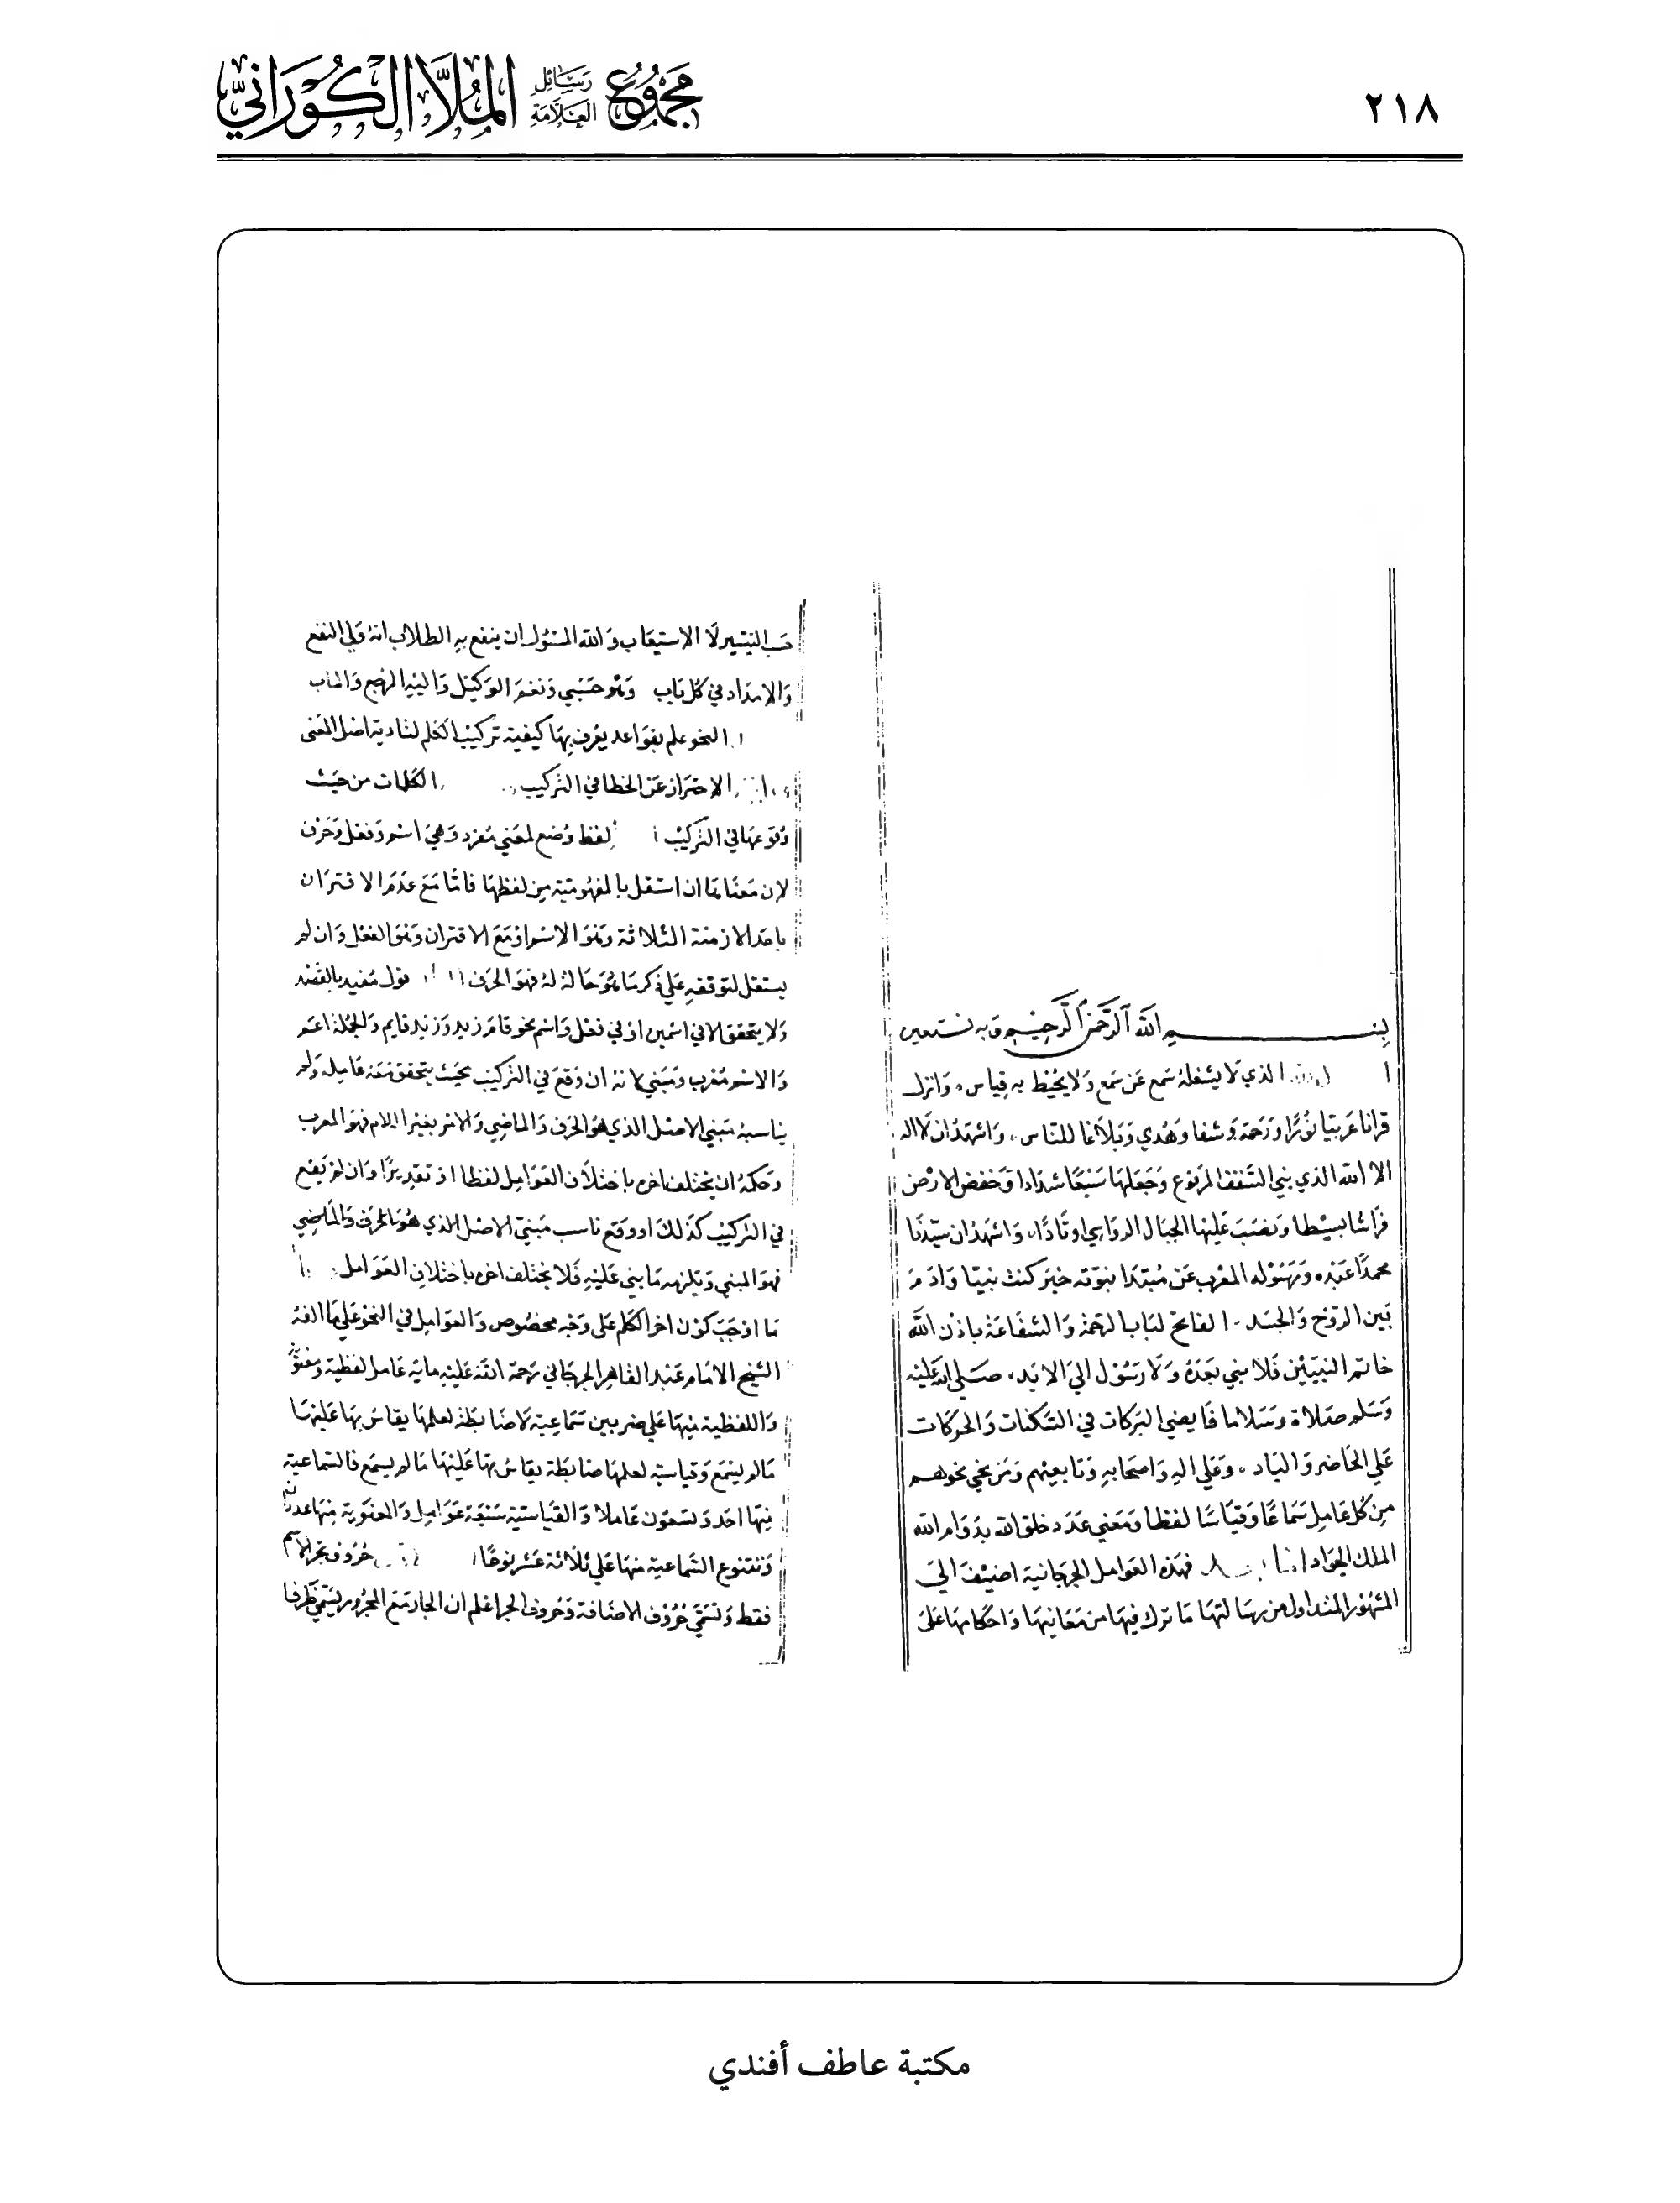 ٢١٨
مجموع رسائل العلامة الملا الكوراني
بسم الله الرحمن الرحيم وبه نستعين
الذي لا يشغله سمع عن سمع ولا يحيط به قياس، وانزل
قرانا عربيا نورا ورحمة وشفا وهدي وبلاغا للناس، واشهد ان لا اله
الا الله الذي بني السقف المرفوع وجعلها سبعا شدادا وخفض الارض
فراشا بسيطا ونصب عليها الجبال الرواسي اوتادا، واشهد ان سيدنا
محمدا عبده ورسوله المعرب عن مبتدا بنوته خبر كنت نبيا وادم
بين الروح والجسد، الفاتح لباب الرحمة والشفاعة باذن الله
خاتم النبيين فلا نبي بعده ولا رسول الي الابد، صلي الله عليه
وسلم صلاة وسلاما فايضي البركات في السكنات والحركات
علي الحاضر والباد، وعلي اله واصحابه وتابعيهم ومن نحي نحوهم
من كل عامل سماعا وقياسا لفظا ومعني عدد خلق الله بدوام الله
الملك الجواد فهذه العوامل الجرجانية اضيف الي
المشهور المتداول من رسالتها ما ترك فيها من معانيها واحكامها علي
حسب التيسير لا الاستيعاب والله المسئول ان ينفع به الطلاب انه ولي النفع
والامداد في كل باب وهو حسبي ونعم الوكيل واليه المرجع والماب
النحو علم بقواعد يعرف بها كيفية تركيب الكلم لتادية اصل المعني
الاحتراز عن الخطا في التركيب الكلمات من حيث
وقوعها في التركيب لفظ وضع لمعني مفرد وهي اسم وفعل وحرف
لان معناها ان استقل بالمفهومية من لفظها فاما مع عدم الاقتران
باحد الازمنة الثلاثة وهو الاسم او مع الاقتران وهو الفعل وان لم
يستقل لتوقفه علي ذكر ما هو حالة له فهو الحرف قول مفيد بالقصد
ولا يتحقق الا في اسمين او في فعل واسم نحو قام زيد وزيد قايم والجملة اعم
والاسم معرب ومبني لانه ان وقع في التركيب بحيث يتحقق معه عامله ولم
يناسبه مبني الاصل الذي هو الحرف والماضي والامر بغير اللام فهو المعرب
وحكمه ان يختلف اخره باختلاف العوامل لفظا او تقديرا وان لم يقع
في التركيب كذلك او وقع ناسب مبني الاصل الذي هو الحرف والماضي
فهو المبني ويلزمه ما بني عليه فلا يختلف اخره باختلاف العوامل
ما اوجب كون اخر الكلم علي وجه مخصوص والعوامل في النحو علي ما الفه
الشيخ الامام عبد القاهر الجرجاني رحمة الله عليه ماية عامل لفظية ومعنوية
واللفظية منها علي ضربين سماعية لا ضابطة لعلمها يقاس بها عليها
ما لم يسمع وقياسية لعلمها ضابطة يقاس بها عليها ما لم يسمع فالسماعية
منها احد وتسعون عاملا والقياسية سبعة عوامل والمعنوية منها عددان
وتتنوع السماعية منها علي ثلاثة عشر نوعا حروف تجر الاسم
فقط وتسمي حروف الاضافة وحروف الجر اعلم ان الجار مع المجرور يسمي ظرفا
مكتبة عاطف أفندي